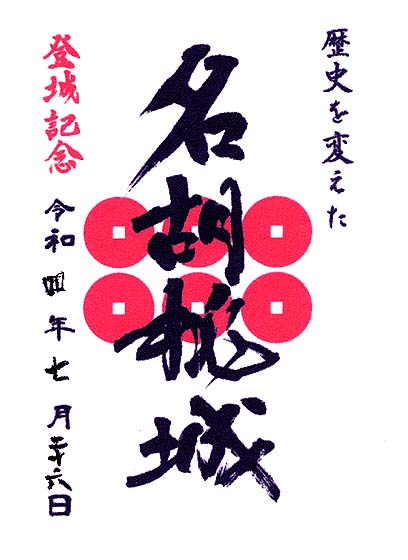 歴史を変えた
名胡桃城
登城記念
令和四年七月二十六日